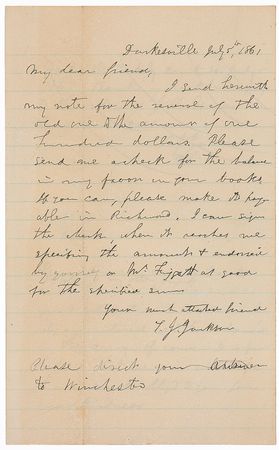 Darkesville July 5th, 1861
My dear friend,
I send herewith
my note for the renewal of the
old one to the amount of one
hundred dollars. Please
send me a check for the balance
in my favor on your books
If you can, please make it pay-
able in Richmond. I can sign
the check, when it reaches me
specifying the amount & endorsed
by or Mr. at good
for the specified sum
Your much attached friend
T. J. Jackson
Please direct your answer
to Winchester